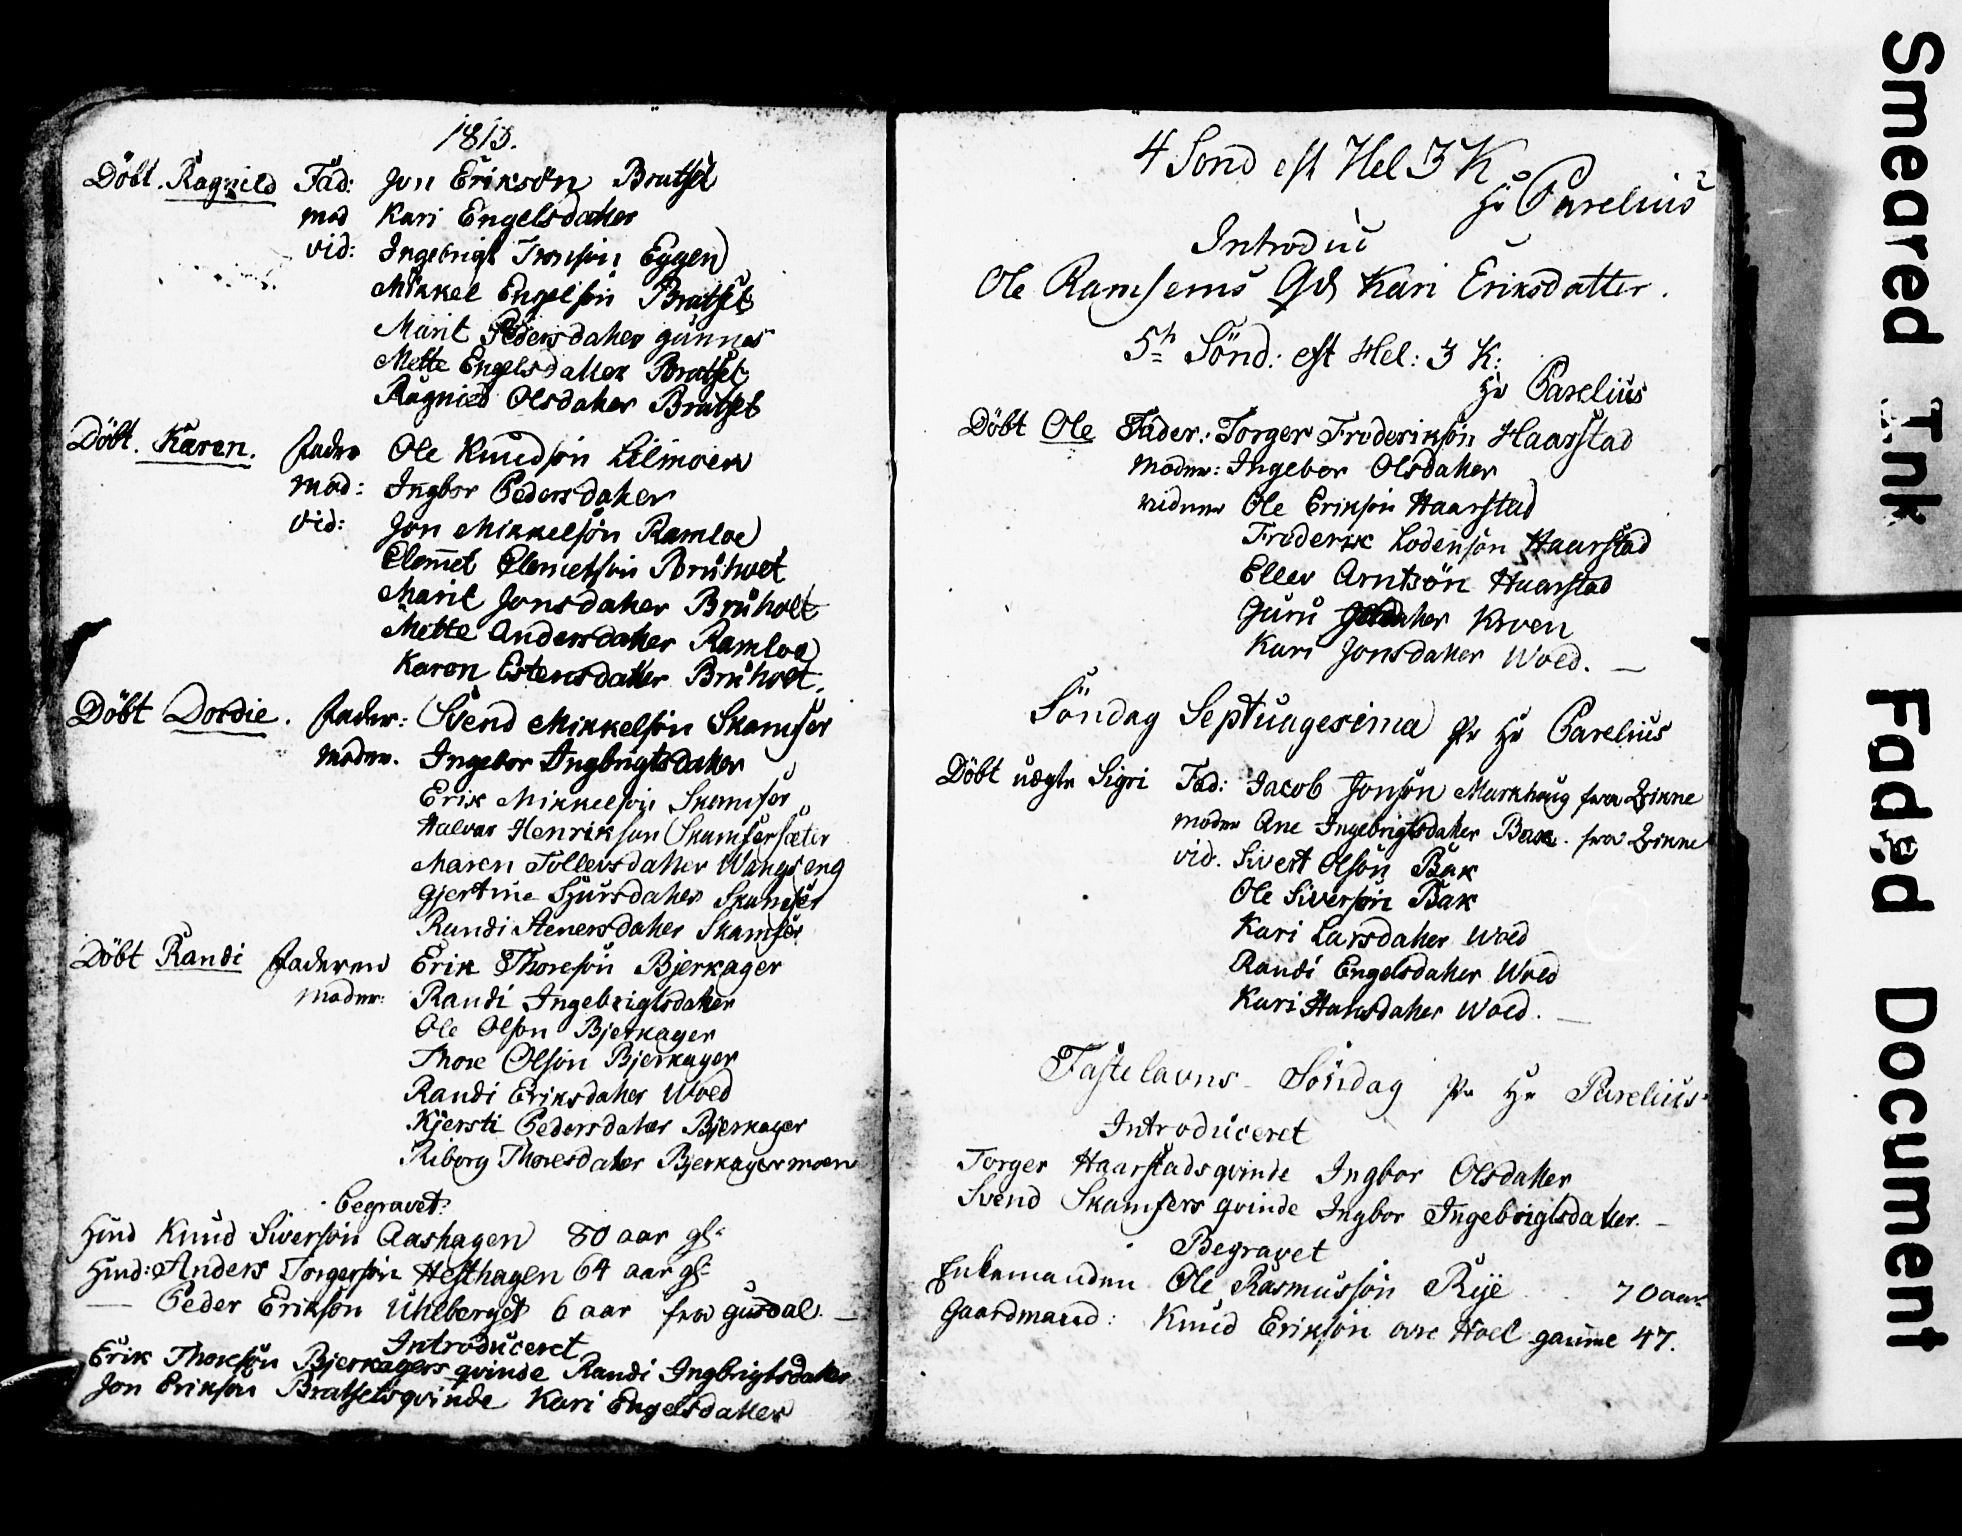 1813.
Döbt. Ragnild Fad: Jon Eriksön Bratset
mod Kari Engelsdatter
vid: Ingebrigt Eggen
Mikkel Engelsön Bratset
Marit Pedersdatter Gunnes
Mette Engelsdatter Bratset
Ragnild Olsdatter Bratset
Döbt. Karen. fader Ole Knudsön Lilmoen
mod: Ingbor Pedersdatter
vid: Jon Mikkelsön Ramloe
Clemet Clemetsön Bruholt
Marit Jonsdatter Bruholt
Mette Andersdatter Ramloe
Karen Estensdatter Bruholt.
Döbt Dordie. fader: Svend Mikkelsön Skamfer
moder. Ingebor Ingbrigtsdatter
Erik Mikkelsön Skamfer
Halvar Henriksön Skamfersæter
Maren Tollevsdatter Wangseng
Gjertine Sjursdatter Skamfer
Randi Stenersdatter Skamfer
Döbt Randi faderen Erik Thoresön Bjerkager
moder: Randi Ingebrigtsdatter
Ole Olsön Bjerkager
Thore Olsön Bjerkager
Randi Eriksdatter Wold
Kjersti Pedersdatter Bjerkager
Riborg Thoresdatter Bjerkagermoen
Begravet:
Hmd Knud Siversön Aashagen 80 aar gl:
Hmd: Anders Torgersön Hesthagen 64 aar gl:
— Peder Eriksön Uhlberget 6 aar fra Gusdal. —
Introduceret
Erik Thoresön Bjerkagers qvinde Randi Ingbrigtsdatter
Jon Eriksön Bratsets qvinde Kari Engelsdatter
4 Sond eft Hel 3 K
Hr Parelius
Introdu
Ole Ramsems Kari Eriksdatter.
5te Sönd: eft Hel: 3 K:
Hr Parelius
Döbt Ole Fader: Torger Frederiksön Haarstad
moder: Ingebor Olsdatter
vidner Ole Eriksön Haarstad
Frederik Lodensön Haarstad
Ellev Arntsön Haarstad
Guru Kroen
Kari Jonsdatter Wold. —
Söndag Septuagesima Pr Hr Parelius
Döbt uægte Sigri Fad: Jacob Jonsön Markhaug fra
moder Ane Ingebrigtsdatter Bak. fra
vid. Sivert Olsön Bak
Ole Siversön Bak
Kari Larsdatter Wold
Randi Engelsdatter Wold
Kari Hansdatter Wold. —
Fastelavns-Söndag Pr Hr Parelius
Introduceret
Torger Haarstads qvinde Ingbor Olsdatter
Svend Skamfers qvinde Ingbor Ingebrigtsdatter. —
Begravet
Enkemanden Ole Rasmussön Rye 70 aar
Gaardmand: Knud Eriksön ovre Hoel gamme 47.
Smeared Ink
Faded Document